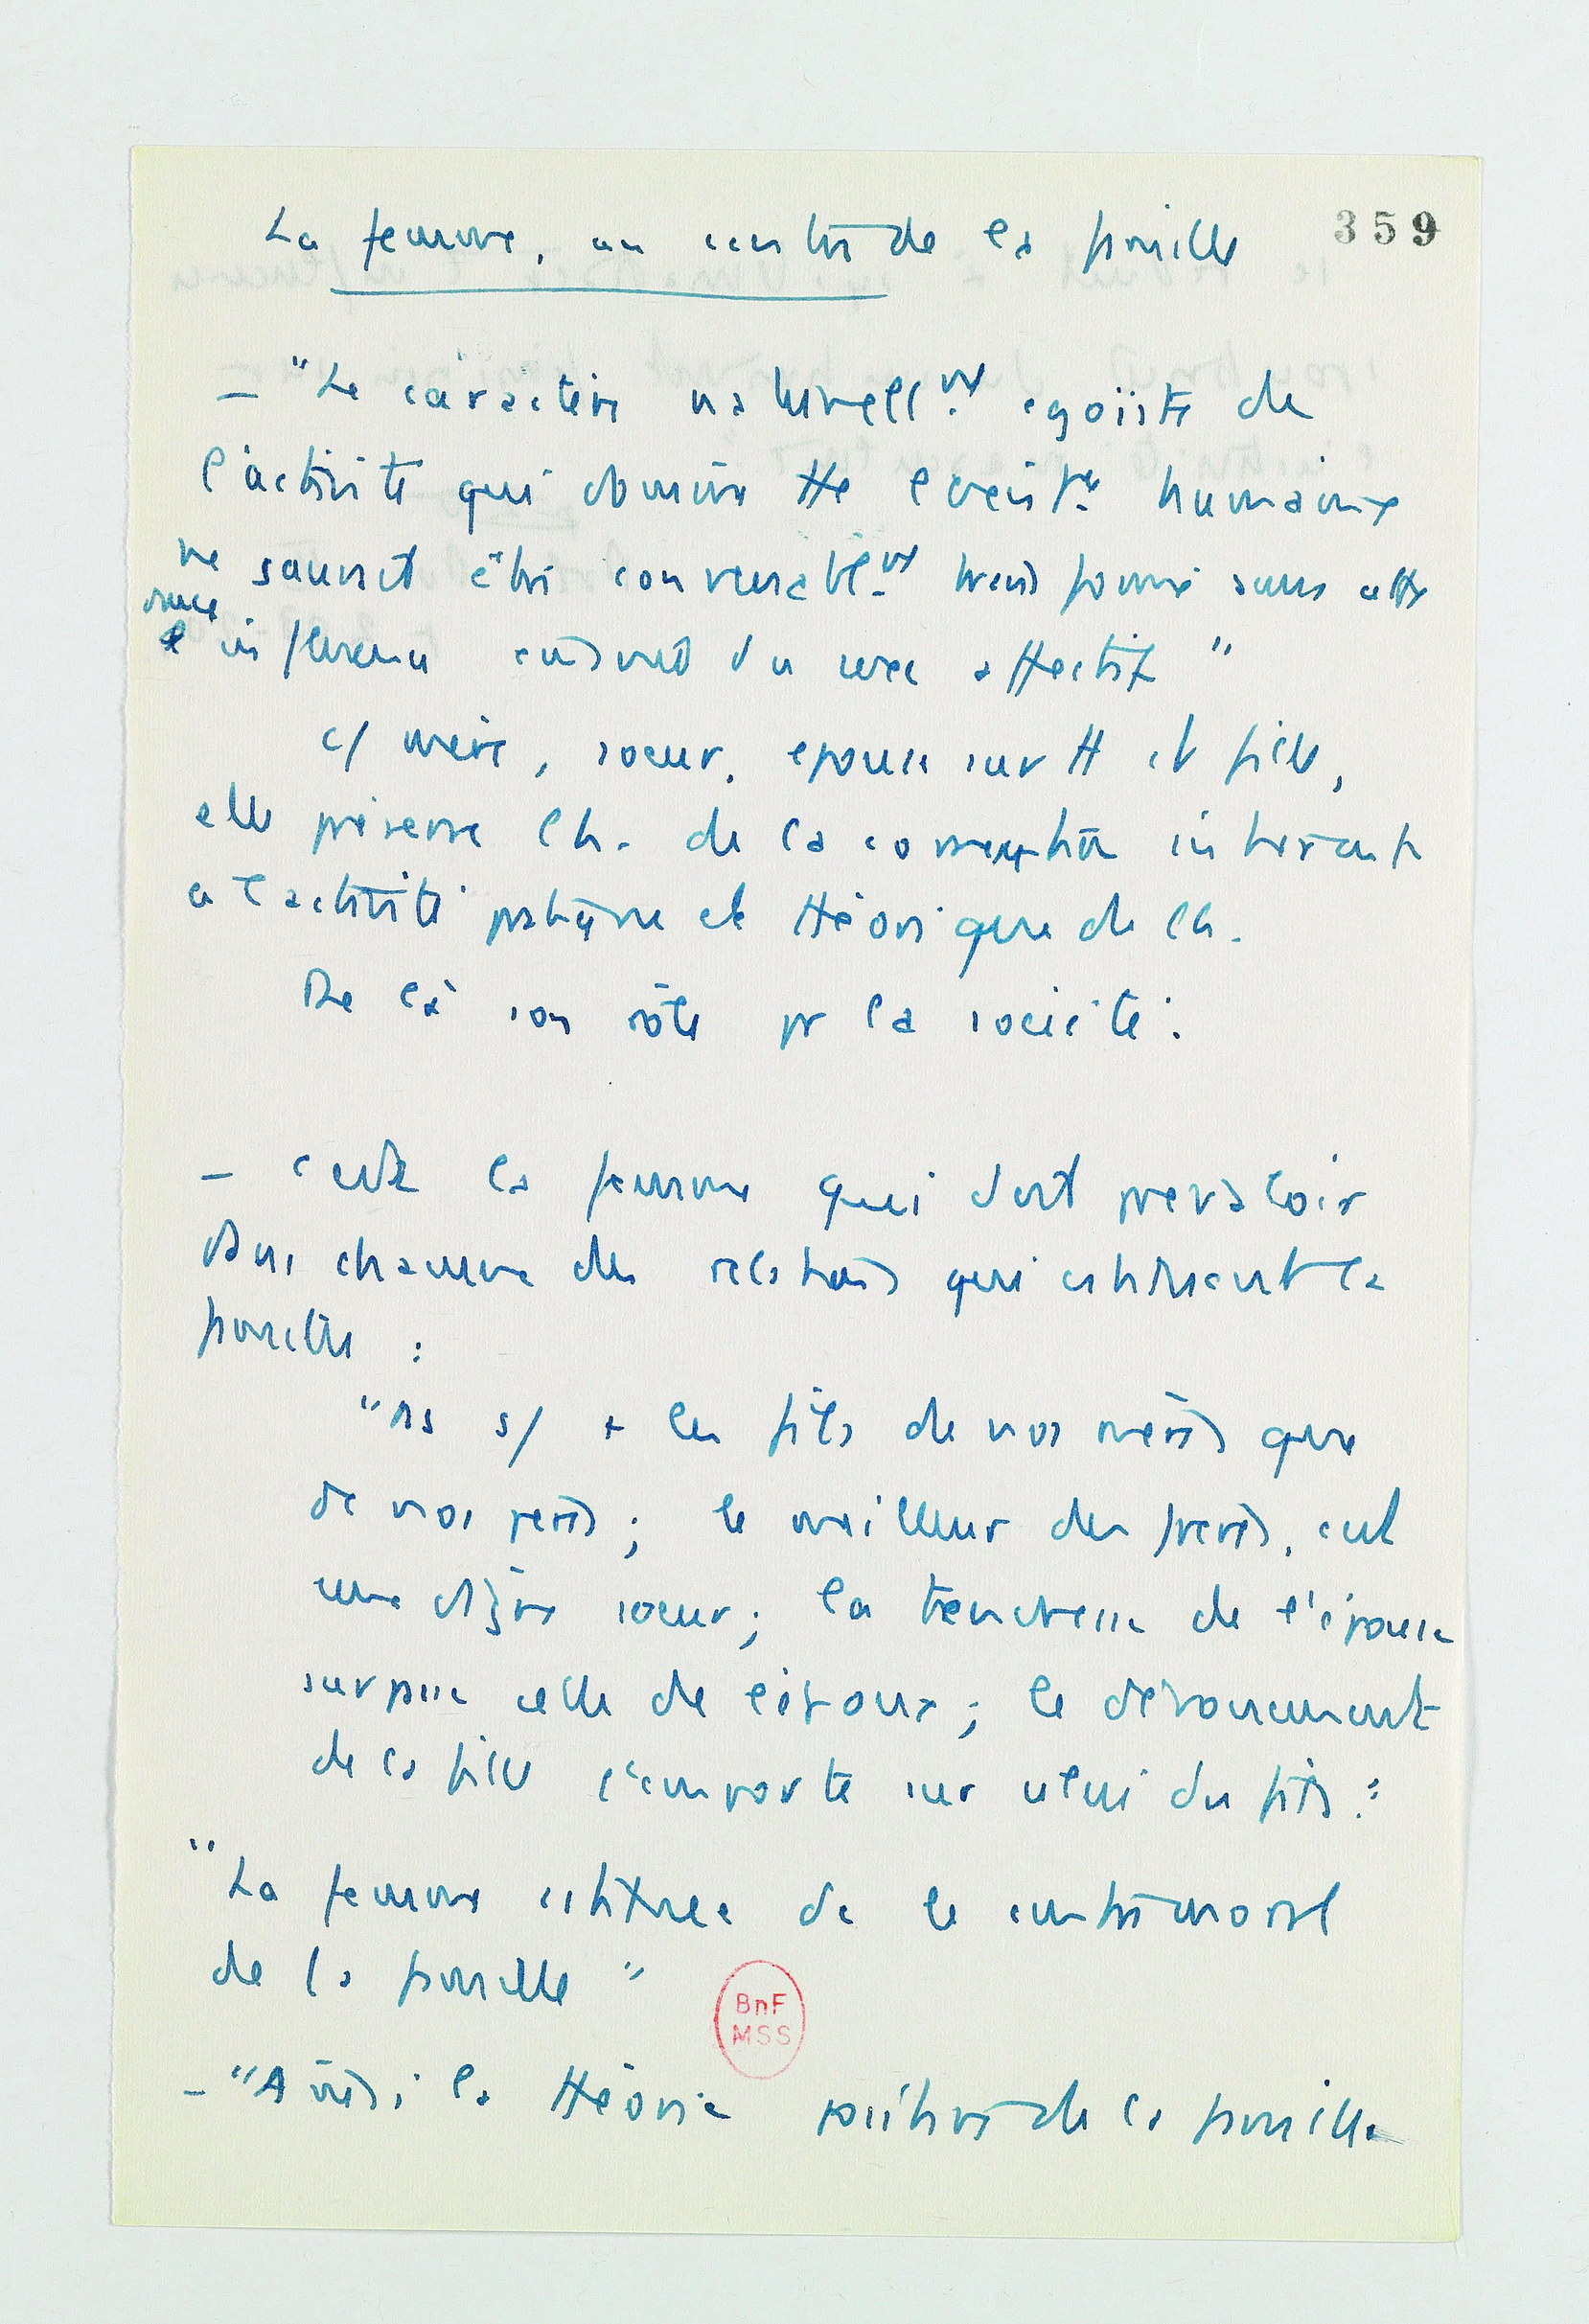 359
La femme, au centre de la famille
— "Le caractère naturell.nt egoiste de
l'activité qui domine tte l'exist.ce humaine
ne saurait être convenabl.nt transformé sans cette
douce influence émanée du sexe affectif "
c/ mère, soeur, epouse surtt et fille,
elle préserve l'h. de la corruption inhérente
a l'activité pratique et théorique de l'h.
De là son rôle pr la société.
— c'est la femme qui doit prevaloir
dans chacune des relations qui constituent la
famille :
"ns s/ + les fils de nos mères que
de nos peres ; le meilleur des freres, c'est
une digne soeur ; la tendresse de l'épouse
surpasse celle de l'époux ; le dévouement
de la fille l'emporte sur celui du fils."
"La femme constitue dc le centre moral
de la famille "
BnF
MSS
— "Ainsi la théorie positive de la famille